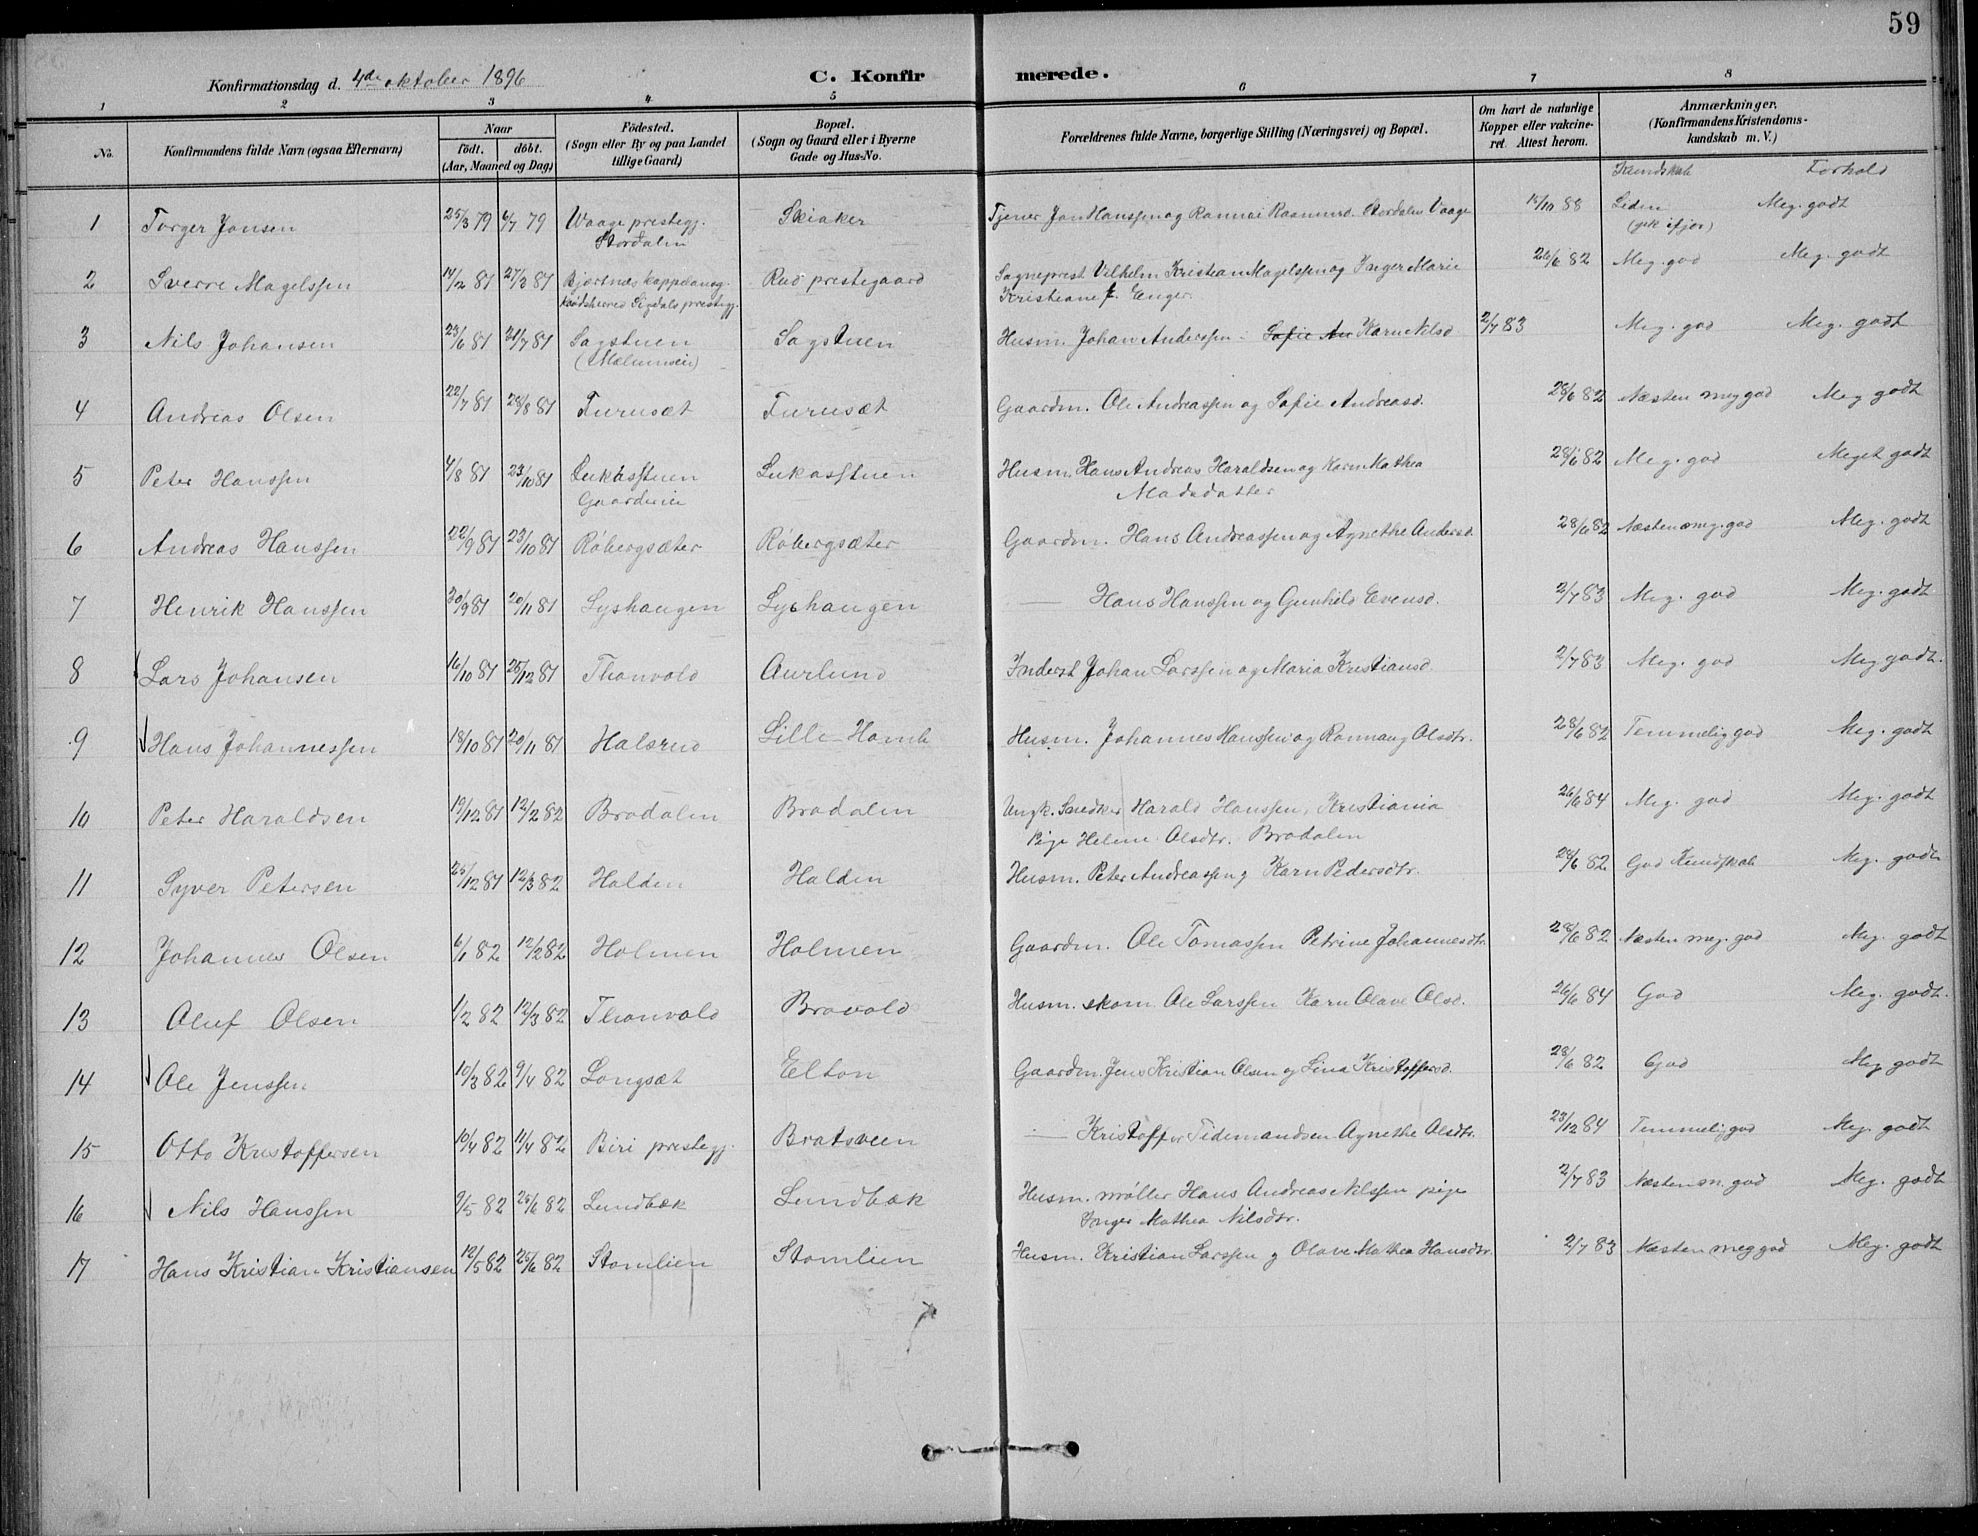 59
Konfirmationsdag d. 4de oktober 1896 C. Konfirmerede.
1 2 3 4 5 6 7 8
No. Konfirmandens fulde Navn (ogsaa Efternavn) Naar födt. döbt. (Aar, Maaned og Dag) Födested. (Sogn eller By og paa Landet tillige Gaard) Bopæl. (Sogn og Gaard eller i Byerne Gade og Hus-No. Forældrenes fulde Navne, borgerlige Stilling (Næringsvei) og Bopæl. Om havt de naturlige Kopper eller vakcineret. Attest herom. Anmærkninger. (Konfirmandens Kristendomskundskab m. V.)
Kundskab Forhold
1 Torger Jonsen 25/3 79 6/7 79 Waage prestegj. Skiaker Tjener Jon Hanssen og Rannei Stordalen Vaage 88 Liden Meg. godt
Stordalen
2 Sverre Magelssen 14/2 81 27/3 81 Bjertnæs Rud prestegaard Sogneprest Vilhelm Kristian Magelssen og Inger Marie 26/6 82 Meg. god Meg. godt
Sigdals prestegj. Kristiane f. Enger.
3 Nils Johansen 23/6 81 31/7 81 Sagstuen Sagstuen Husm. Johan Anderssen Sofie An Karn Nilsd 2/7 83 Meg. god Meg. godt
4 Andreas Olsen 22/7 81 28/8 81 Furusæt Furusæt Gaardm. Ole Andreassen og Sofie Andreasd. 28/6 82 Næsten meg god Meg godt
5 Peter Hanssen 4/8 81 23/10 81 Lukasstuen Lukasstuen Husm. Hans Andreas Haraldsen og Karn Mathea 28/6 82 Meg. god Meget godt
Madsdatter
6 Andreas Hanssen 22/9 81 23/10 81 Røbergsæter Røbergsæter Gaardm. Hans Andreassen og Agnethe Andersd. 28/6 82 Næsten meg. god Meg. godt
7 Henrik Hanssen 30/9 81 20/11 81 Lyshaugen Lyshaugen — Hans Hanssen og Gunhild Evensd. 2/7 83 Meg. god Meg. godt
8 Lars Johansen 16/10 81 26/12 81 Thonvold Aurlund Inderst Johan Larssen og Maria Kristiansd. 2/7 83 Meg. god Meg godt.
9 Hans Johannessen 18/10 81 20/11 81 Halsrud Lille-Homb Husm. Johannes Hanssen og Rønnaug Olsdtr. 28/6 82 Temmelig god Meg. godt
10 Peter Haraldsen 19/12 81 12/2 82 Brodalen Brodalen Ungk. Snedker Harald Hanssen, Kristiania 26/6 84 Meg. god Meg. godt
Pige Helene Olsdtr. Brodalen
11 Syver Petersen 25/12 81 12/3 82 Holden Holden Husm. Peter Andreassen g Karn Pedersdtr. 28/6 82 God Kundskab Meg. godt
12 Johannes Olsen 6/1 82 12/2 82 Holmen Holmen Gaardm. Ole Tomassen Petrine Johannesdtr. 28/6 82 Næsten meg. god Meg. godt
13 Oluf Olsen 1/2 82 12/3 82 Thonvold Brovold Husm. skom. Ole Larssen Karn Olave Olsd. 26/6 84 God Meg. godt.
14 Ole Jenssen 10/3 82 9/4 82 Longsæt Elton Gaardm. Jens Kristian Olsen og Lina Kristoffersd. 28/6 82 God Meg godt
15 Otto Kristoffersen 10/4 82 11/4 82 Biri prestegj. Bratsveen — Kristoffer Tidemandsen Agnethe Olsdtr. 23/12 84 Temmelig god Meg. godt
16 Nils Hanssen 9/5 82 25/6 82 Lundbæk Lundbæk Husm. møller Hans Andreas Nilssen pige 2/7 83 Næsten m. god Meg. godt
Inger Mathea Nilsdtr.
17 Hans Kristian Kristiansen 12/5 82 25/6 82 Stomlien Stomlien Husm. Kristian Larssen g Olave Mathea Hansdtr. 2/7 83 Næsten meg god Meg. godt